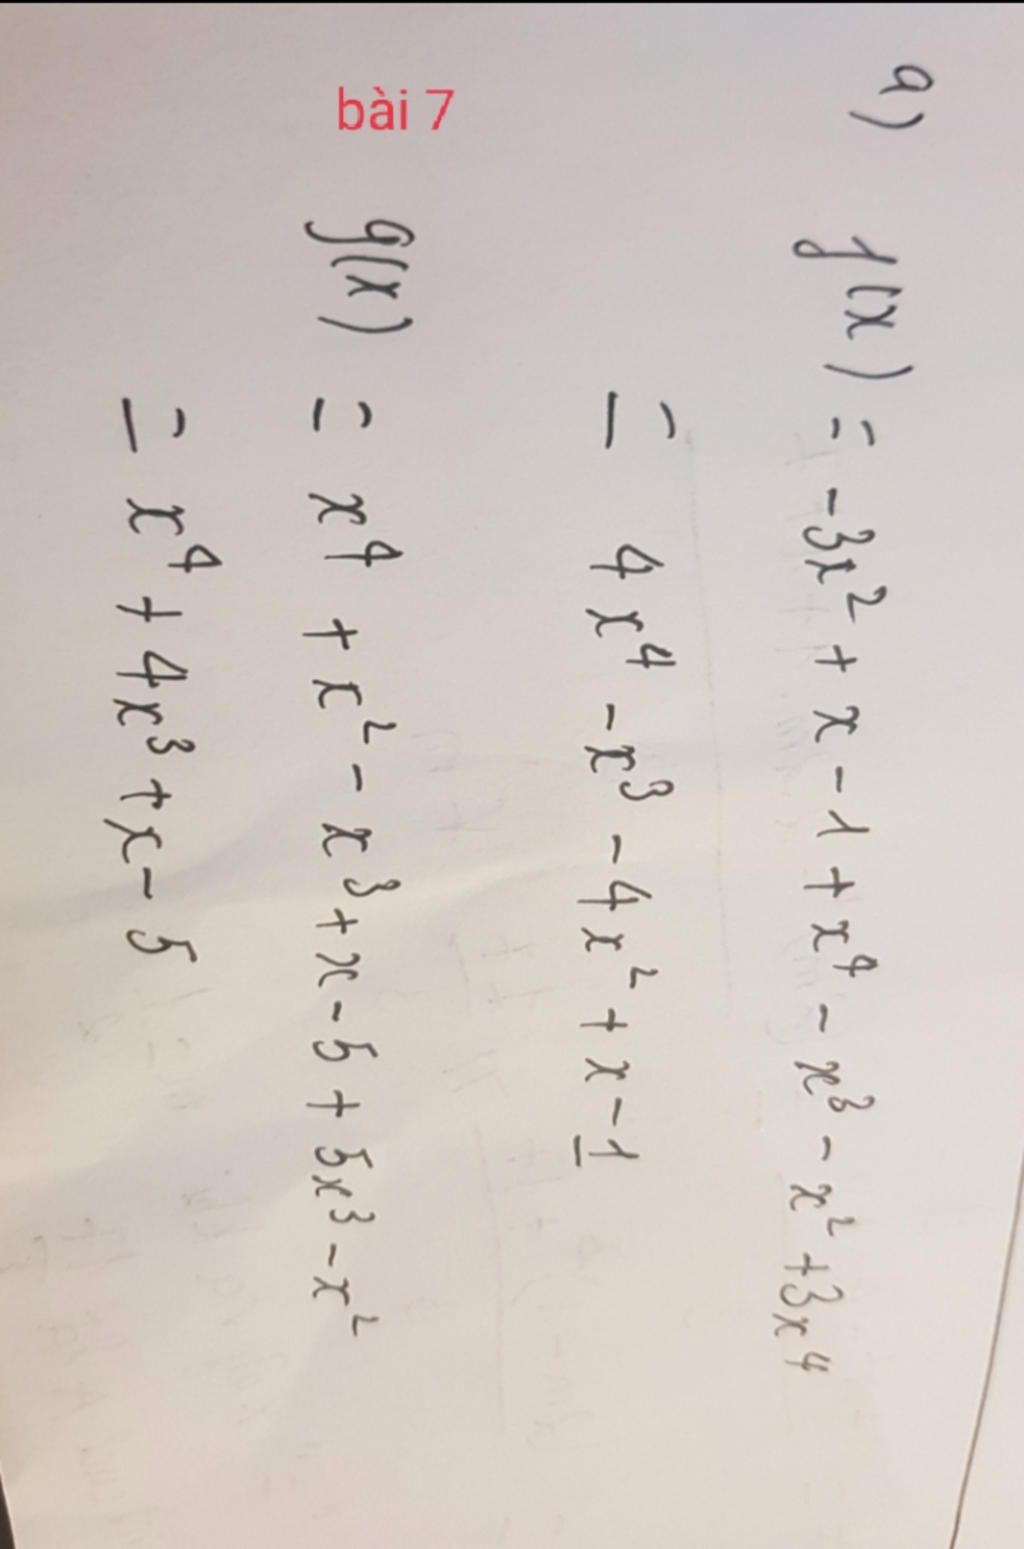 a) f(x) = -3x² + x - 1 + x⁴ - x³ - x² + 3x⁴
= 4x⁴ - x³ - 4x² + x - 1
bài 7
g(x) = x⁴ + x² - x³ + x - 5 + 5x³ - x²
= x⁴ + 4x³ + x - 5